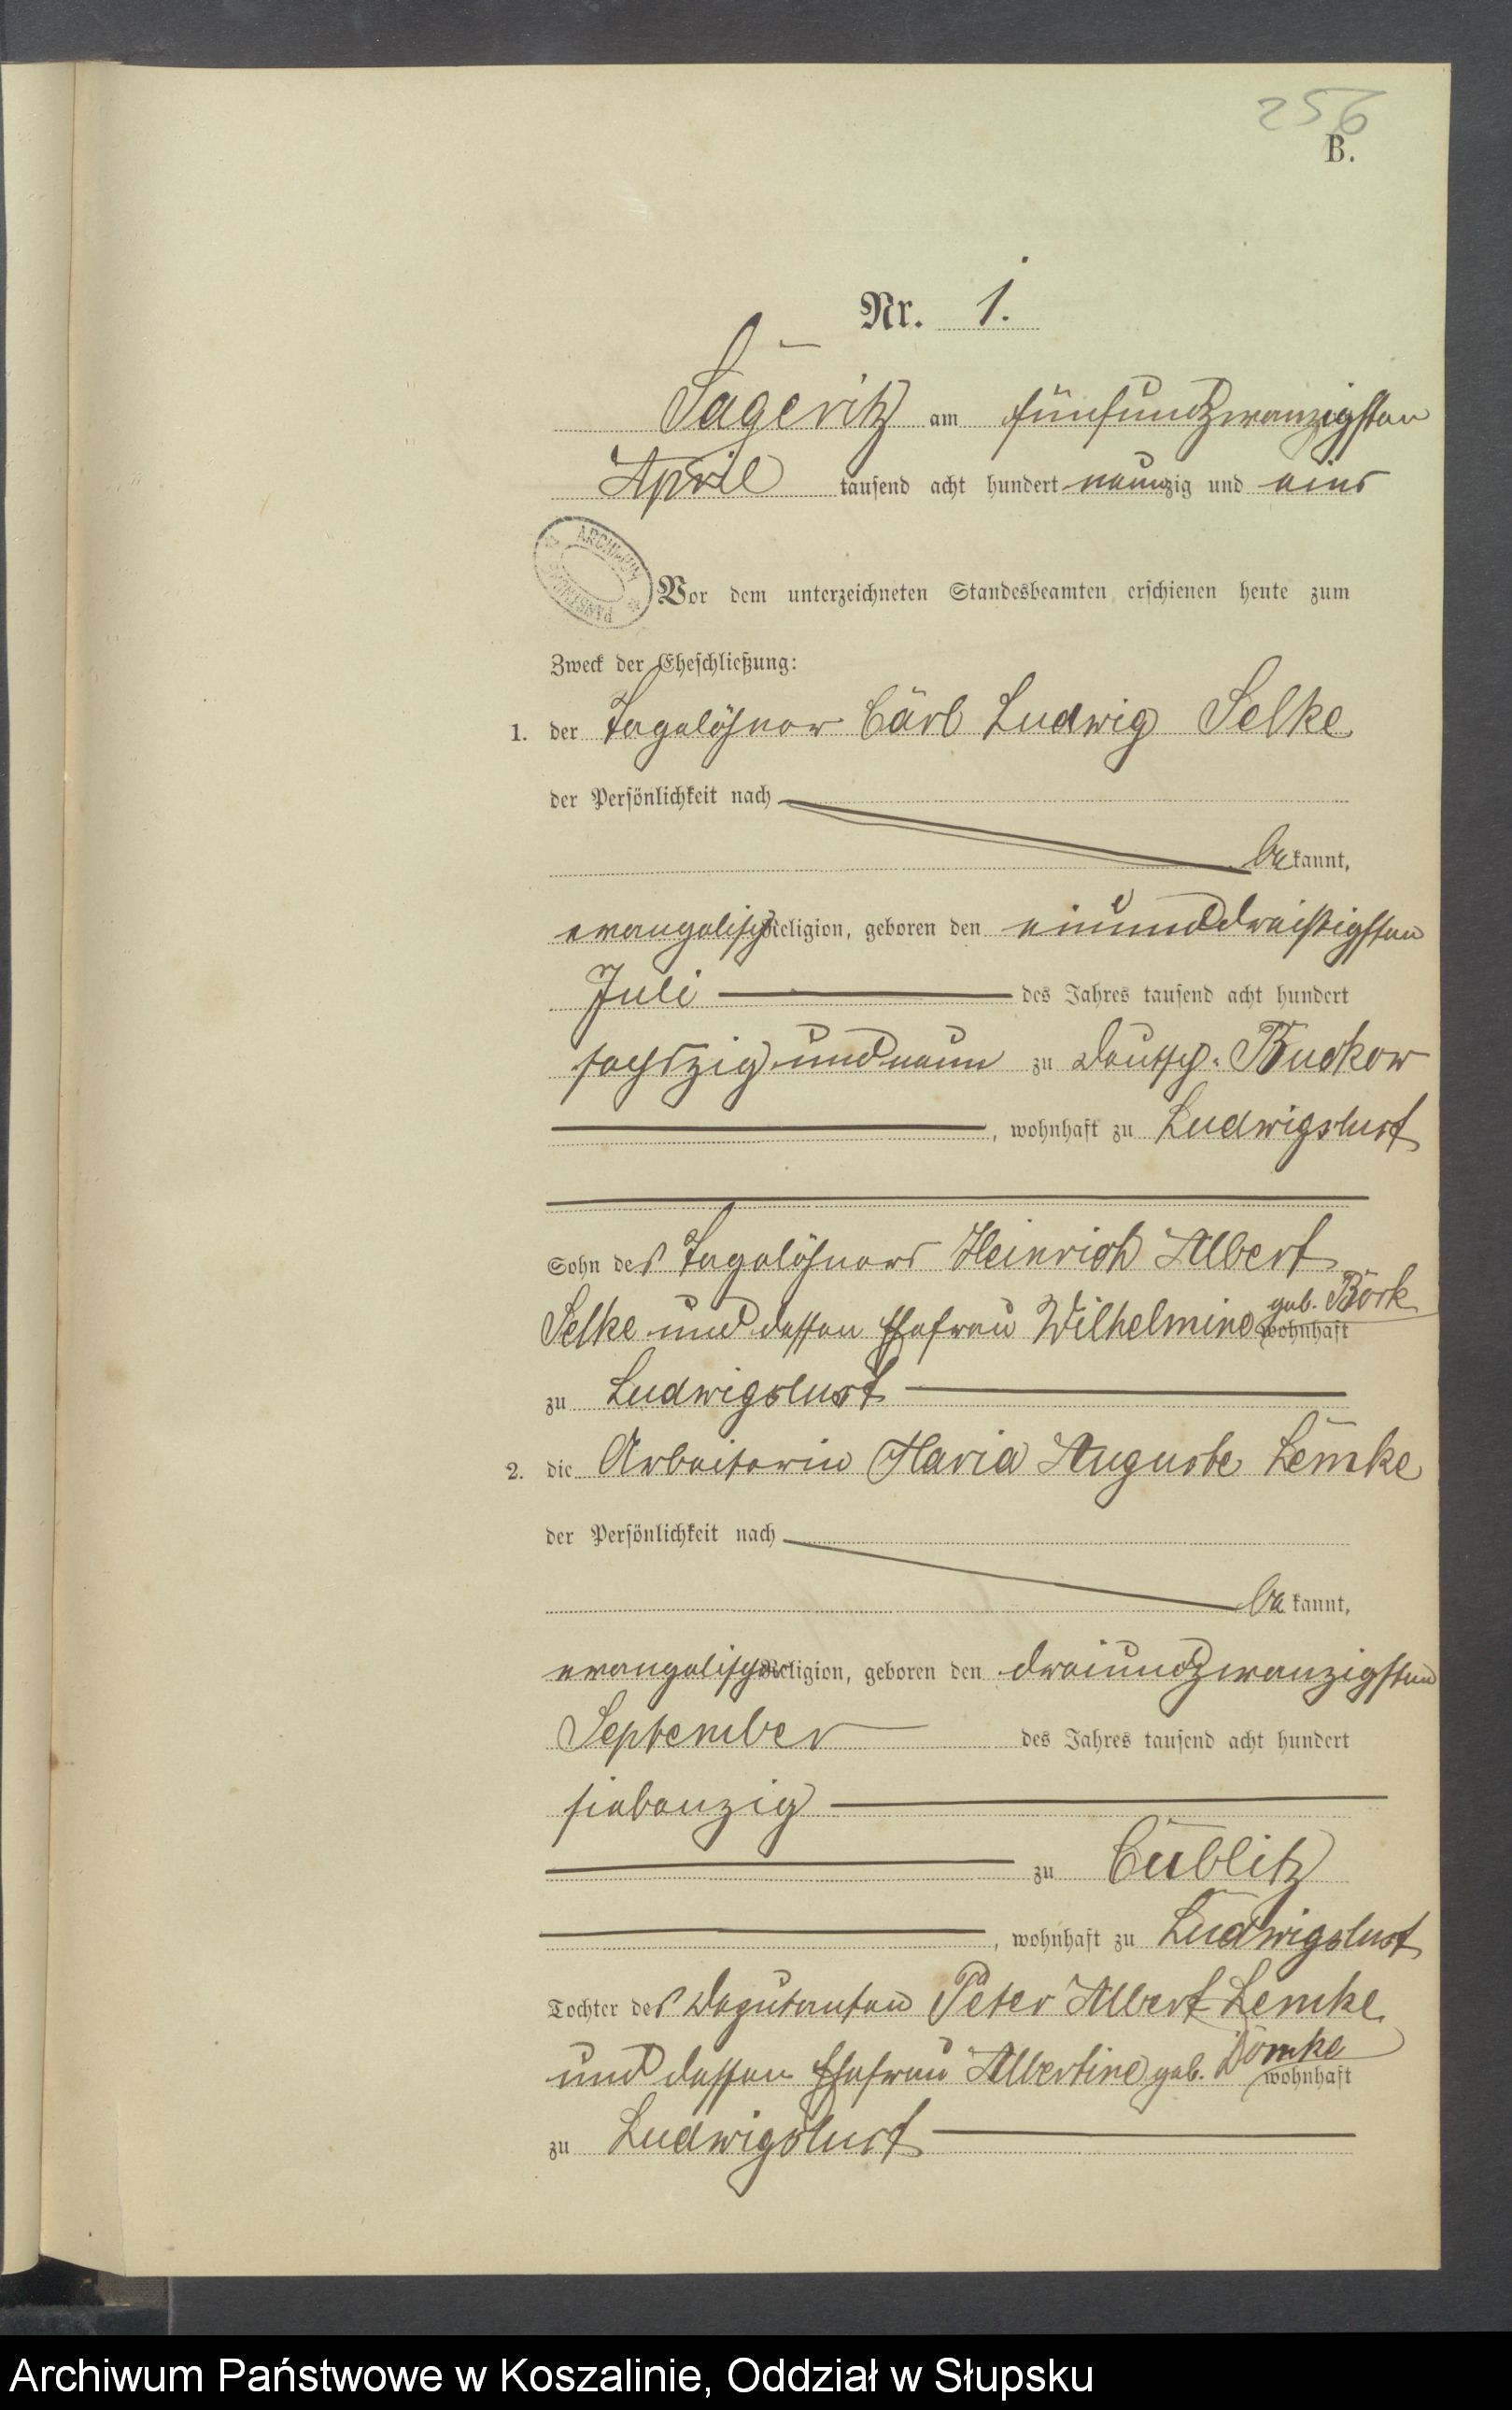 256
B.
Nr. 1.
Sageritz am fünfundzwanzigsten
April tausend acht hundert neunzig und eins
ARCHIWUM PAŃSTWOWE
Vor dem unterzeichneten Standesbeamten erschienen heute zum
Zweck der Eheschließung:
1. der Tagelöhner Carl Ludwig Selke
der Persönlichkeit nach
be kannt,
evangelisch Religion, geboren den einunddreißigsten
Juli des Jahres tausend acht hundert
sechszig und neun zu Deutsch-Buckow
, wohnhaft zu Ludwigslust
Sohn des Tagelöhners Heinrich Albert
Selke und dessen Ehefrau Wilhelmine geb. Börk wohnhaft
zu Ludwigslust
2. die Arbeiterin Maria Auguste Lemke
der Persönlichkeit nach
be kannt,
evangelischer Religion, geboren den dreiundzwanzigsten
September des Jahres tausend acht hundert
siebenzig
zu Cublitz
, wohnhaft zu Ludwigslust
Tochter des Deputanten Peter Albert Lemke
und dessen Ehefrau Albertine geb. Domke wohnhaft
zu Ludwigslust
Archiwum Państwowe w Koszalinie, Oddział w Słupsku